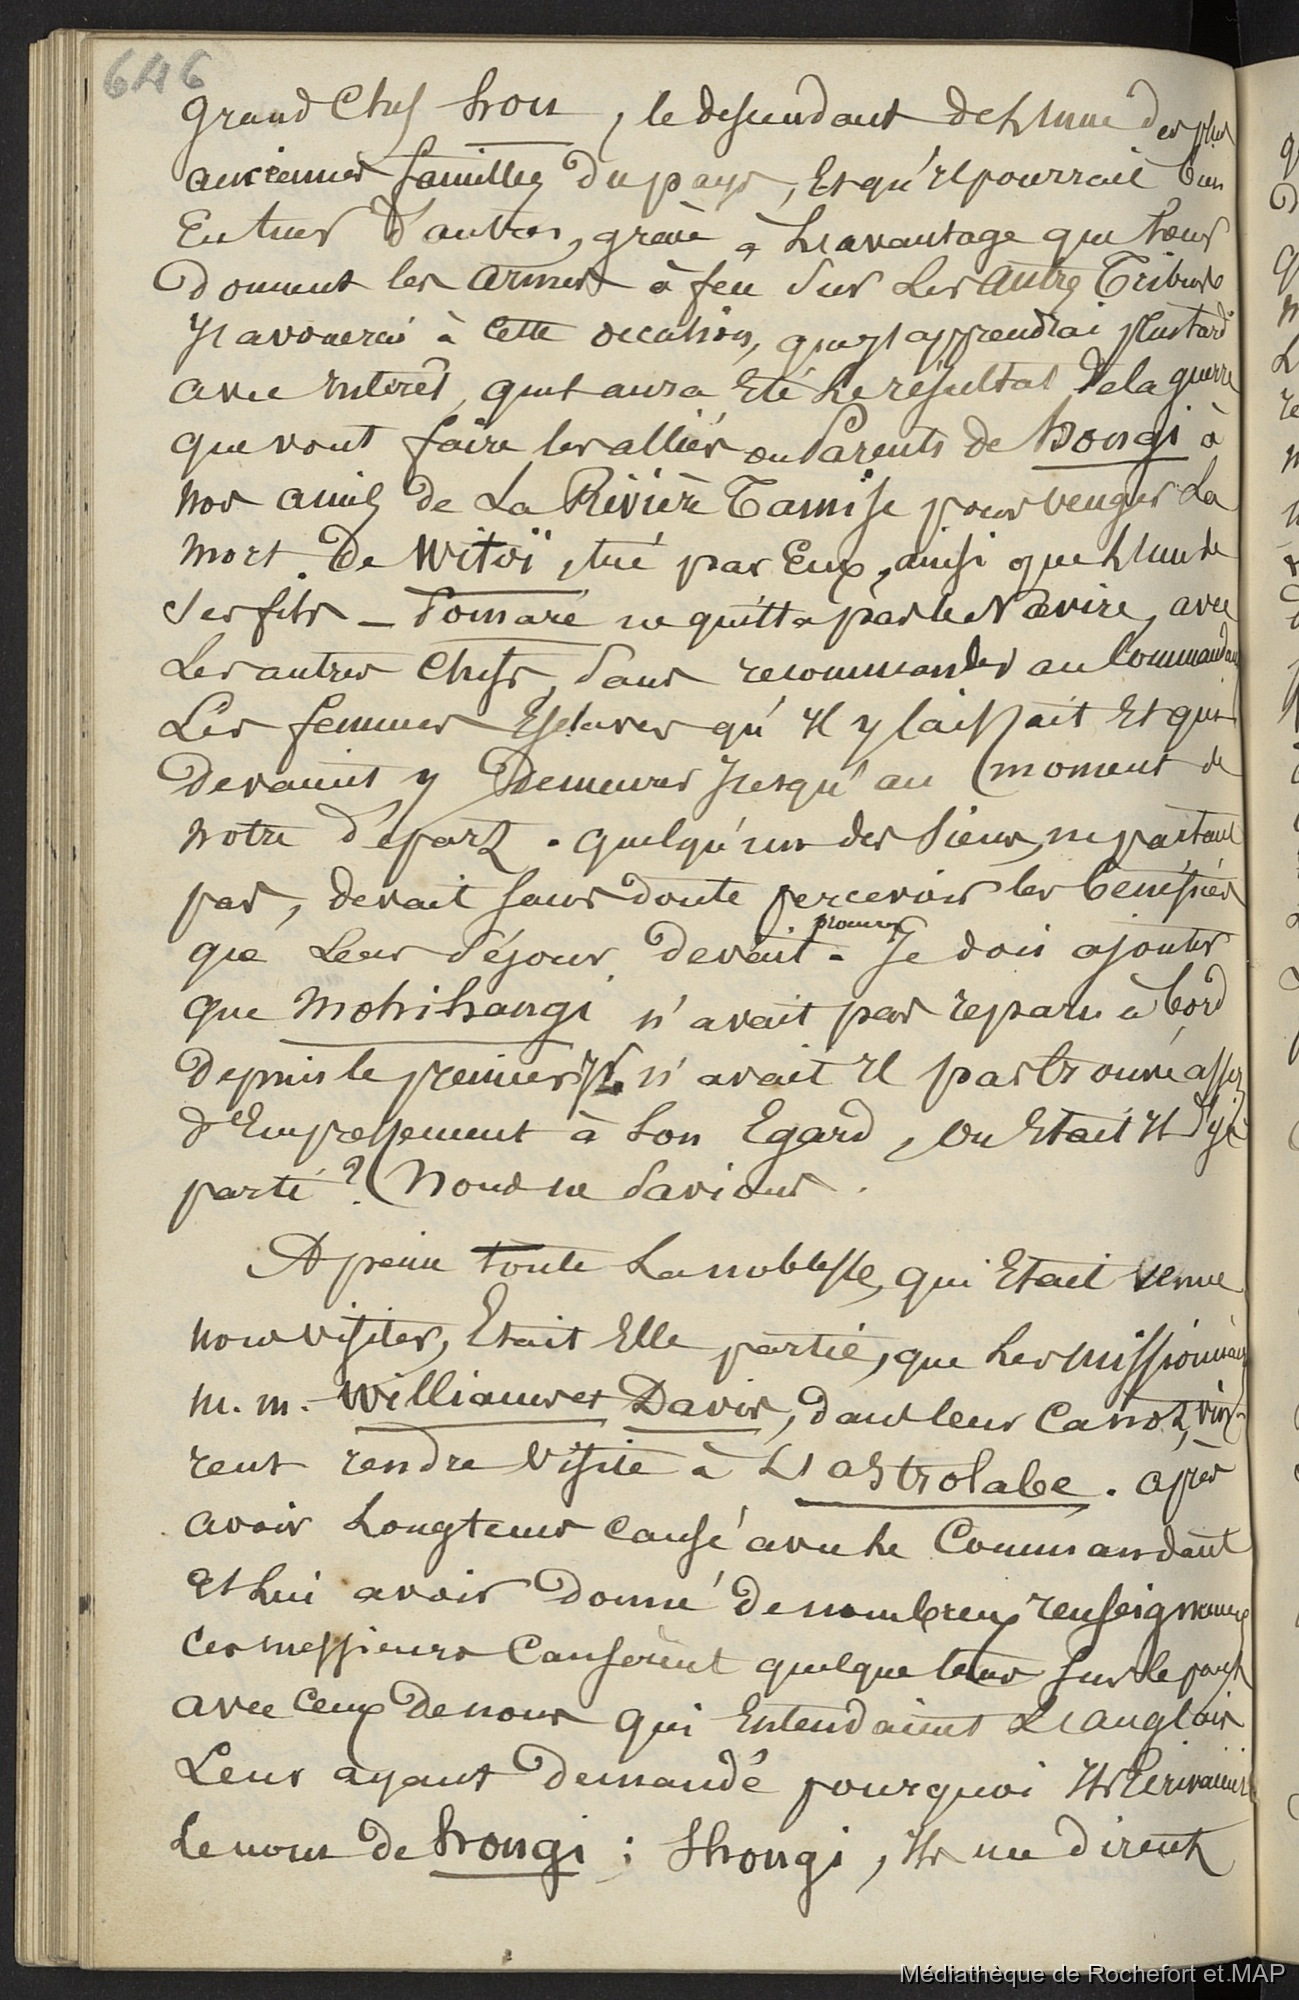 646
grand Chef hrou, le descendant de L'une des plus
anciennes familles du pays, Et qu'il pourrait bien
En tuer d'autres, grace à L'avantage que leur
donnent les armes à feu sur Les autres Tribus
J'avouerai à cette occasion, que j'apprendrai plus tard
avec interêt, quel aura Eté Le résultat de la guerre
que vont faire les alliés ou Parents de hongi à
nos amis de La Rivière Tamise pour venger La
mort de Witoï, tué par Eux, ainsi que L'un de
ses fils _ Pomaré ne quitta pas le Navire, avec
Les autres Chefs, sans recommander au Commandant
Les femmes Esclaves qu'il y laissait Et qui
devaient y Demeurer jusqu'au moment de
notre départ. quelqu'un des siens, ne partant
pas, devait sans doute percevoir les benefices
que Leur séjour devait procurer. Je dois ajouter
que Mohihangi n'avait pas reparu à bord
depuis le premier n'avait il pas trouvé assez
d'Empressement à son Egard, ou Etait il déjà
parti? Nous ne savions.
A peine toute La noblesse, qui Etait venue
nous visiter, Etait Elle partie, que Les missionnaires
m. m. Williams et Davis, dans leur Canot, vin-
rent rendre visite à L'astrolabe. après
avoir Longtems causé avec Le Commandant
Et Lui avoir donné de nombreux renseignements
ces messieurs Causèrent quelque tems sur le pont
avec Ceux de nous qui Entendaient L'anglais
Leur ayant demandé pourquoi Ils Ecrivaient
Le nom de hongi ; Shongi, Ils me dirent
Médiathèque de Rochefort et.MAP